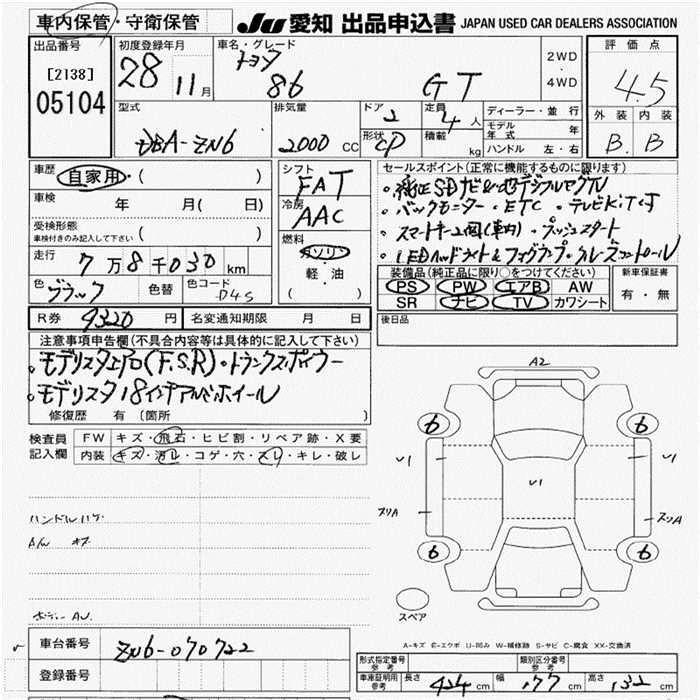 車内保管・守衛保管 JU 愛知 出品申込書 JAPAN USED CAR DEALERS ASSOCIATION
出品番号 初度登録年月 車名・グレード 2WD ・ 4WD 評価点
[2138] 05104 28 11月 トヨタ 86 GT 4.5
型式 排気量 ドア 2 定員 4人 ディーラー・並行 外装 内装
DBA-ZN6 2000 CC 形状 CP 積載 kg モデル年式 年 B. B
ハンドル 左・右
車歴 自家用・( ) シフト FAT セールスポイント(正常に機能するものに限ります)
車検 年 月( 日) 冷房 AAC ・純正SDナビ&地デジフルセグTV
受検形態 車検付きのみ記入して下さい ( ) ・バックモニター・ETC・テレビKiT付
燃料 ガソリン ・スマートキー2個(車内)・プッシュスタート
走行 7万8千030km 軽・油 ・LEDヘッドライト&フォグランプ・クルーズコントロール
色 ブラック 色替 色コード D4S ( ) 装備品(純正品に限り○をつけてください) 新車保証書
PS PW エアB AW 有・無
SR ナビ TV カワシート
R券 9320円 名変通知期限 月 日 後日品
注意事項申告欄(不具合内容等は具体的に記入して下さい)
・モデリスタエアロ(F.S.R)・トランクスポイラー
・モデリスタ18インチアルミホイール
修復歴 有(箇所 )
検査員記入欄 FW キズ・飛石・ヒビ割・リペア跡・X要
内装 キズ・汚レ・コゲ・穴・スレ・キレ・破レ
A2
6 6
U1 U1 U1
スリA スリA
6 6
ハンドルハゲ
A/W キズ
スペア
A-キズ E-エクボ U-凹み W-補修跡 S-サビ C-腐食 XX-交換済
車台番号 ZN6-070722
登録番号
形式指定番号 参考 類別区分番号 参考
車庫証明用 参考 長さ 424cm 幅 177cm 高さ 132cm